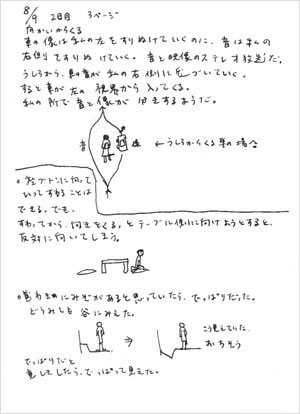 8/9 2日目 3ページ
向かいからくる
車の像は私の左をすりぬけていくのに、音は私の
右側ですりぬけていく。音と映像のステレオ放送だ。
うしろから、車の音が私の右側に近づいていく。
すると車が左の視界から入ってくる。
私の所で音と像が交差するようだ。
音
像
←うしろからくる車の場合
○座ブトンに向って
いってすわることは
できる。でも、
すわってから、向きをくるっとテーブル側に向けようとすると、
反対に向いてしまう。
みぞがあると思っていたら、でっぱりだった。
どうみても谷にみえた。
こう見えていた。
おちそう
でっぱりだと
意しきしたら、でっぱって見えた。